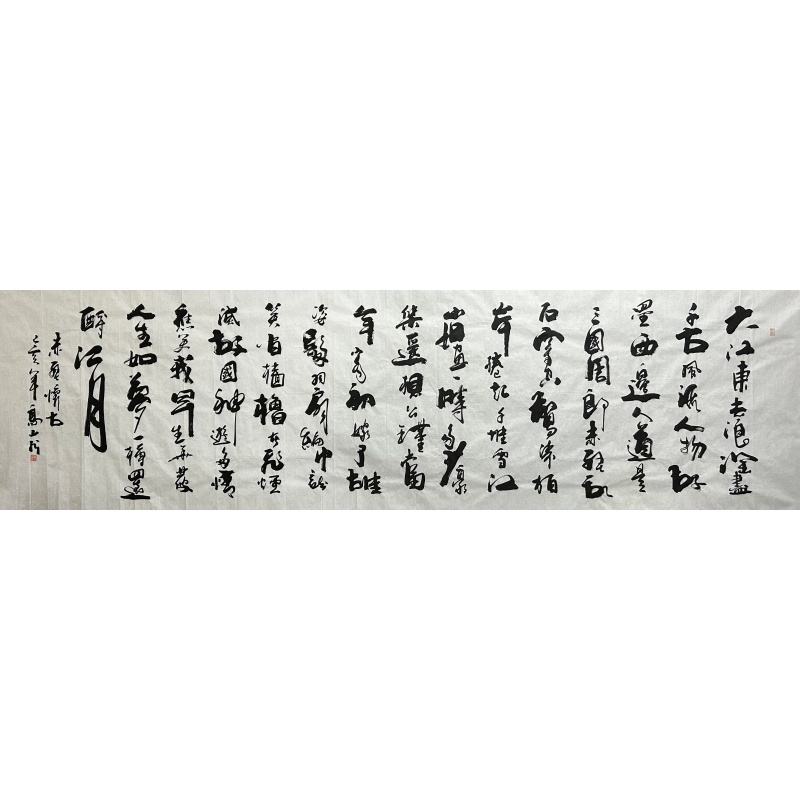 大江東去浪淘盡
千古風流人物故
壘西邊人道是
三國周郎赤壁亂
石穿空驚濤拍
岸捲起千堆雪江
山如畫一時多少豪
傑遥想公瑾當
年小喬初嫁了雄
姿英發羽扇綸巾談
笑間檣櫓灰飛煙
滅故國神遊多情
應笑我早生華髮
人生如夢一樽還
酹江月
赤壁懷古
亥年高